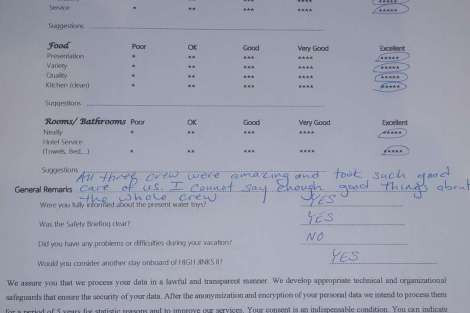 Service * ** *** **** *****
Suggestions
Food Poor OK Good Very Good Excellent
Presentation * ** *** **** *****
Variety * ** *** **** *****
Quality * ** *** **** *****
Kitchen (clean) * ** *** **** *****
Suggestions
Rooms/ Bathrooms Poor OK Good Very Good Excellent
Neatly * ** *** **** *****
Hotel Service
(Towels, Bed,...) * ** *** **** *****
Suggestions All three crew were amazing and took such good
General Remarks care of us. I cannot say enough good things about
the whole crew
Were you fully informed about the present water toys? YES
Was the Safety Briefing clear? YES
Did you have any problems or difficulties during your vacation? NO
Would you consider another stay onboard of HIGH JINKS II? YES
We assure you that we process your data in a lawful and transparent manner. We develop appropriate technical and organizational
safeguards that ensure the security of your data. After the anonymization and encryption of your personal data we intend to process them
for a period of 5 years for statistic reasons and to improve our services. Your consent is an indispensable condition. You can indicate